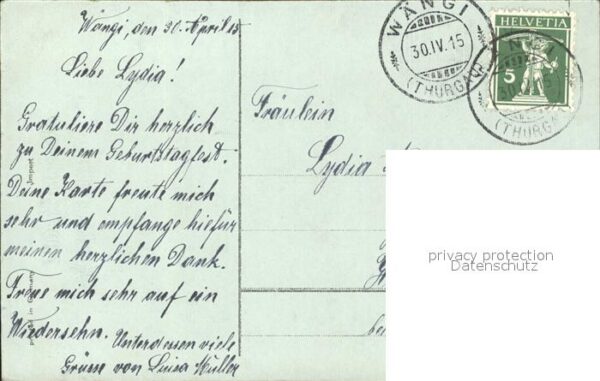 Wängi, den 30. April 15
Liebe Lydia!
Gratuliere Dir herzlich
zu Deinem Geburtstagfest.
Deine Karte freute mich
sehr und empfange hiefür
meinen herzlichen Dank.
Freue mich sehr auf ein
Wiedersehn. Unterdessen viele
Grüsse von Luisa Müller
Import
Printed in Germany
WÄNGI
30.IV.15
(THURGAU)
HELVETIA
5
NGI
(THURGA
Fräulein
Lydia
bei
privacy protection
Datenschutz